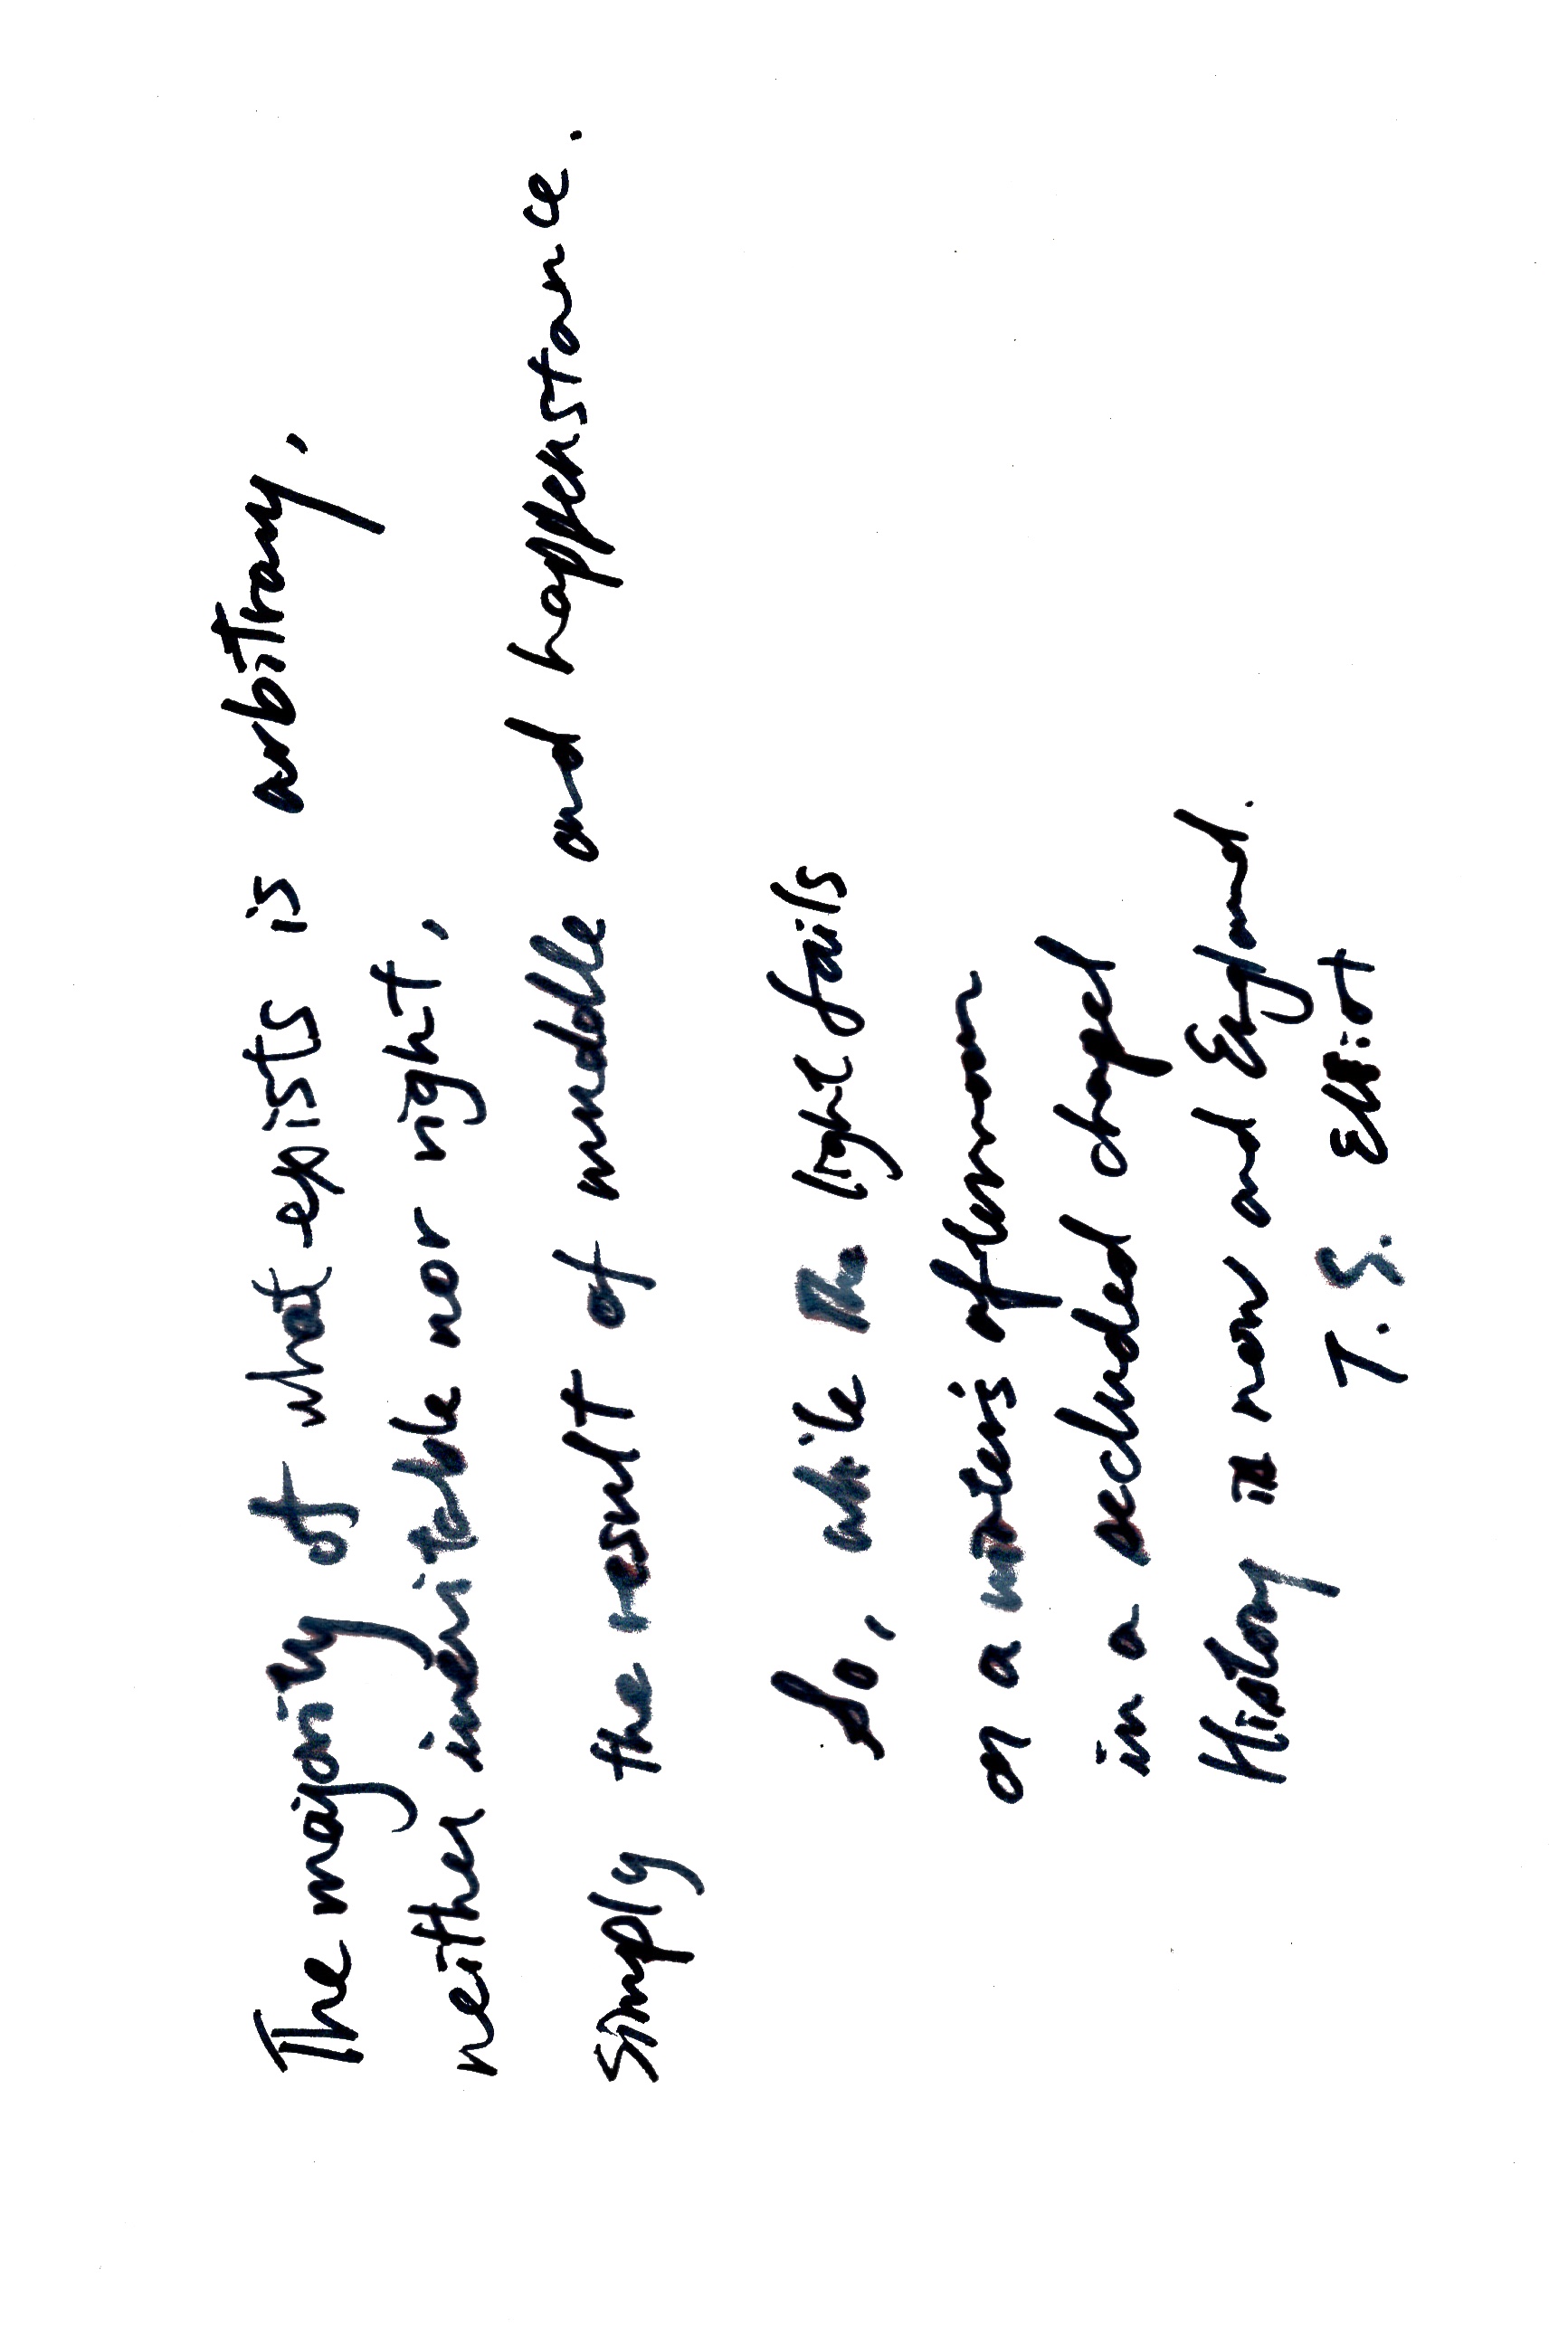 The majority of what exists is arbitrary,
neither inevitable nor right,
simply the result of muddle and happenstance.
So, while the light fails
on a winter's afternoon
in a secluded chapel
History is now and England.
T. S. Eliot